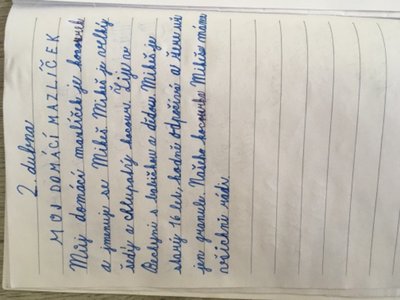 2. dubna
MOJ DOMÁCÍ MAZLÍČEK
Můj domácí mazlíček je kocourek
a jmenuje se Mikeš. Mikeš je velký
šedý a chlupatý kocour. Žije v
s babičkou a dědou. Mikeš je
starý 16 let, hodně odpočívá a žere už
jen granule. Našeho kocourka Mikeše máme
všichni rádi.